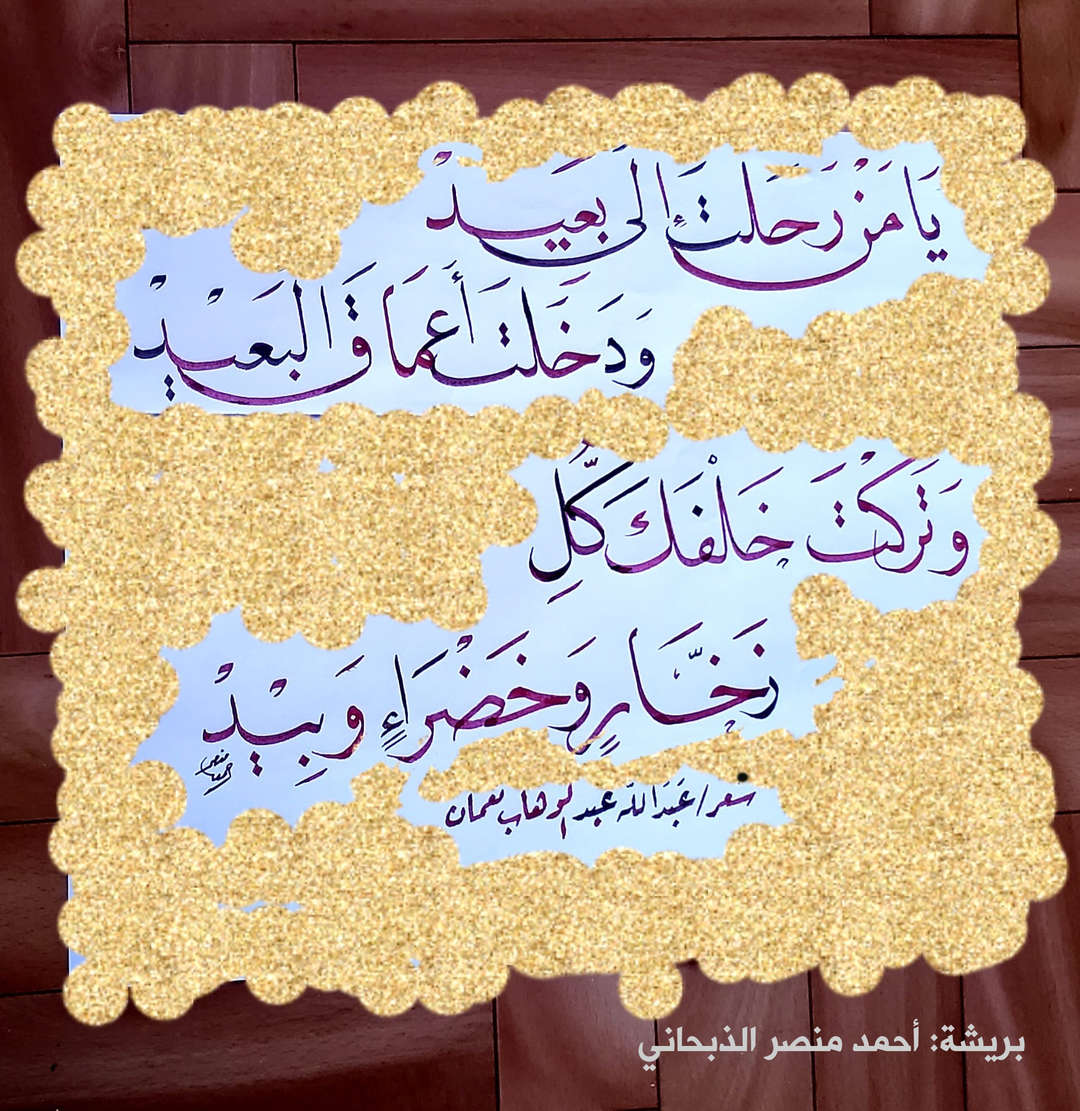 يَا مَنْ رَحَلتَ إِلَى بَعَيدْ
وَدَخَلتَ أَعمَاقَ البَعَيْدْ
وَتَرَكْتَ خَلْفَكَ كُلِّ
زخَّارٍ وَخَضْرَاءٍ وَبِيْدْ
شعر/عَبدَالله عبدالوهاب نعمان
بريشة: أحمد منصر الذبحاني